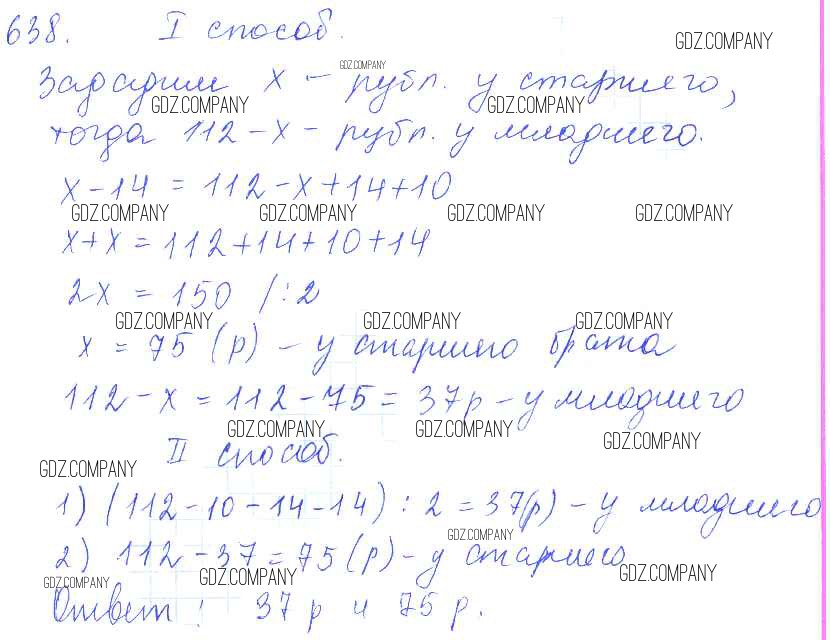 638. I способ.
GDZ.COMPANY
GDZ.COMPANY
Зададим x - рубл. у старшего,
GDZ.COMPANY GDZ.COMPANY
тогда 112-x - рубл. у младшего.
x-14 = 112-x+14+10
GDZ.COMPANY GDZ.COMPANY GDZ.COMPANY GDZ.COMPANY
x+x = 112+14+10+14
2x = 150 /:2
GDZ.COMPANY GDZ.COMPANY GDZ.COMPANY
x = 75 (р) - у старшего брата
112-x = 112-75 = 37р - у младшего
GDZ.COMPANY GDZ.COMPANY GDZ.COMPANY
II способ.
GDZ.COMPANY
1) (112-10-14-14) : 2 = 37(р) - у младшего
GDZ.COMPANY
2) 112-37=75(р) - у старшего
GDZ.COMPANY GDZ.COMPANY GDZ.COMPANY
Ответ: 37 р и 75 р.